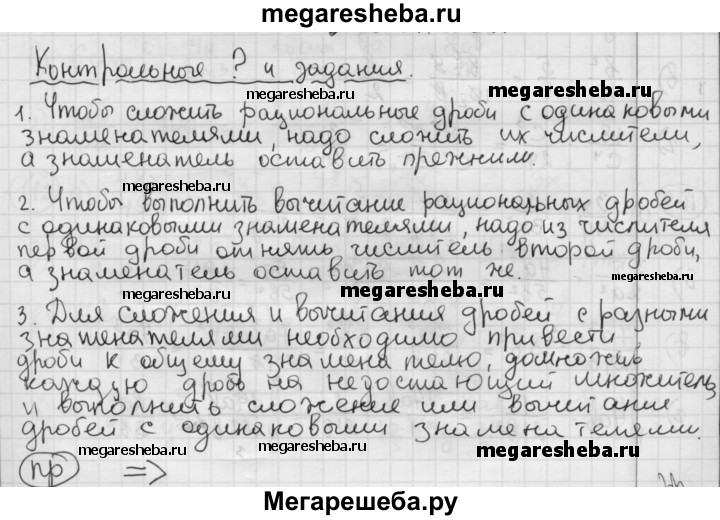 megaresheba.ru
Контрольные ? и задания.
megaresheba.ru megaresheba.ru
1. Чтобы сложить рациональные дроби с одинаковыми
знаменателями, надо сложить их числители,
а знаменатель оставить прежним.
megaresheba.ru megaresheba.ru
2. Чтобы выполнить вычитание рациональных дробей
с одинаковыми знаменателями, надо из числителя
первой дроби отнять числитель второй дроби,
а знаменатель оставить тот же.
megaresheba.ru
megaresheba.ru megaresheba.ru
3. Для сложения и вычитания дробей с разными
знатенателями необходимо привести
дроби к общему знаменателю, домножив
каждую дробь на недостающий множитель
и выполнить сложение или вычитание
дробей с одинаковыми знаменателями.
megaresheba.ru megaresheba.ru megaresheba.ru
пр =>
Мегарешеба.ру